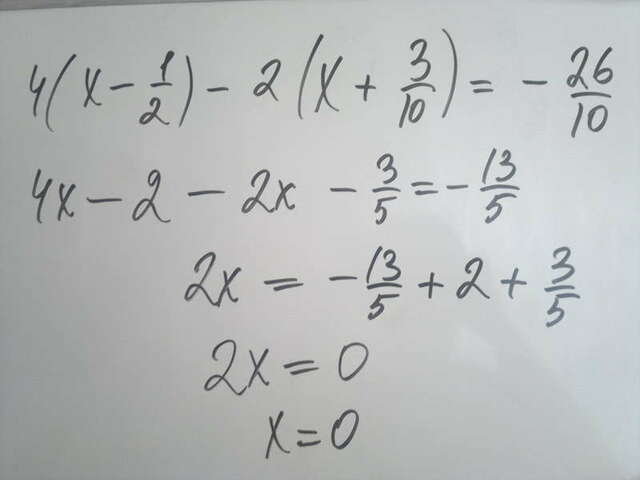 4(x - 1/2) - 2(x + 3/10) = - 26/10
4x - 2 - 2x - 3/5 = - 13/5
2x = - 13/5 + 2 + 3/5
2x = 0
x = 0